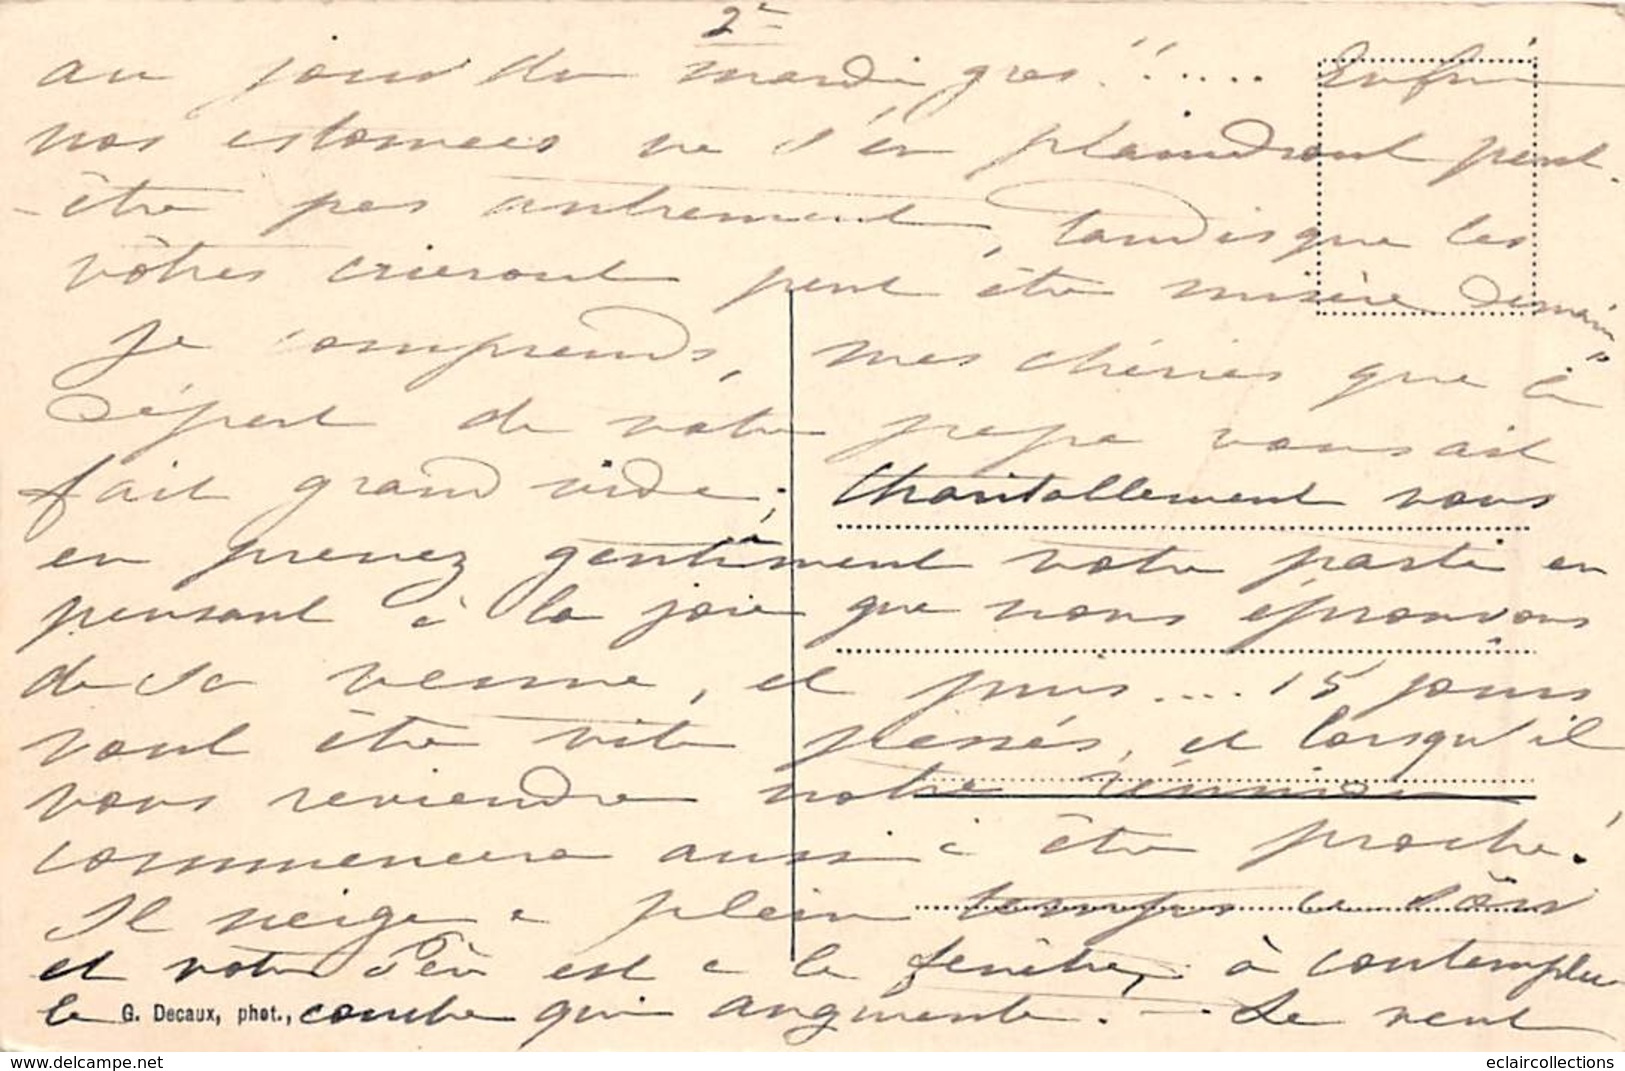 2e
au jour du mardi gras!!..... Enfin
nos estomacs ne s'en plaindront peut-
-être pas autrement, tandis que les
vôtres crieront peut être misère demain!!
Je comprends, mes chéries que le
départ de votre papa vous ait
fait grand vide; vous
en prenez gentiment votre parti en
pensant à la joie que nous éprouvons
de sa venue, et puis.... 15 jours
vont être vite passés, et lorsqu'il
vous reviendra notre réunion
commencera aussi à être proche!
Il neige à plein temps ce soir
et votre père est à la fenêtre, à contempler
la G. Decaux, phot., couche qui augmente. - Le vent
delcampe.net
eclaircollections